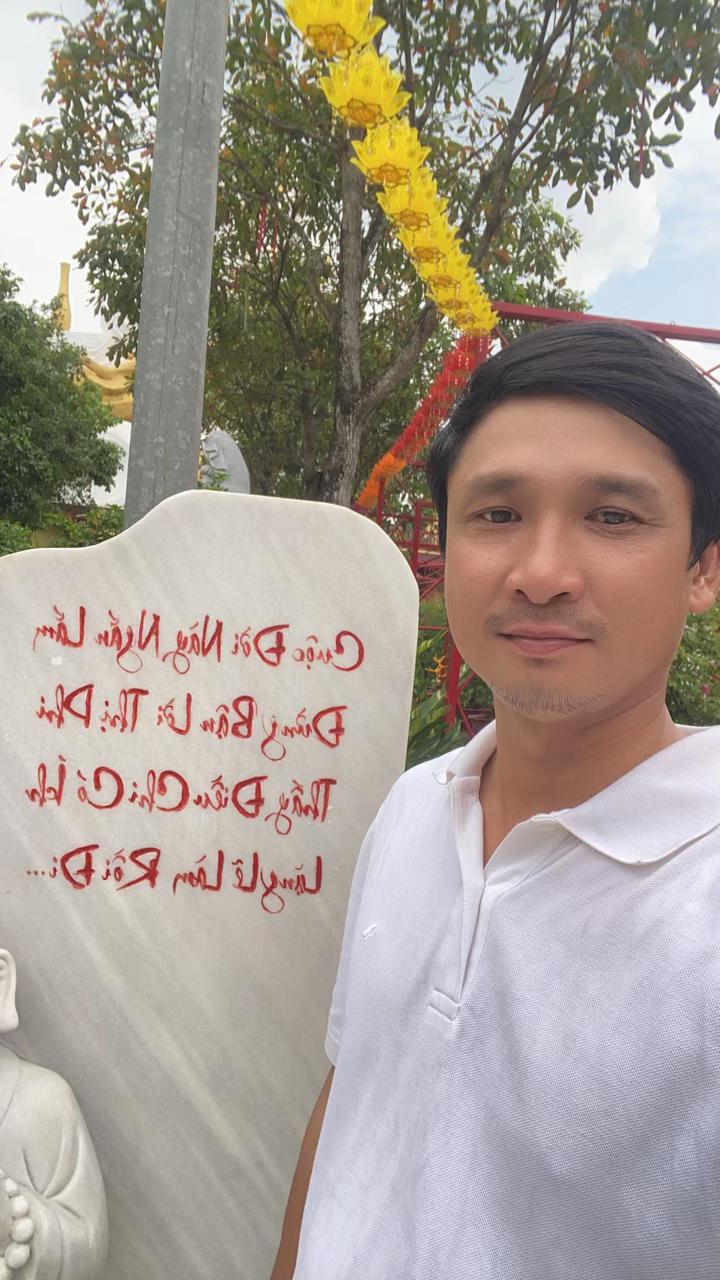 Cuộc Đời Này Ngắn Lắm
Đừng Bận Lời Thị Phi
Thấy Điều Chi Có Ích
Lặng Lẽ Làm Rồi Đi...